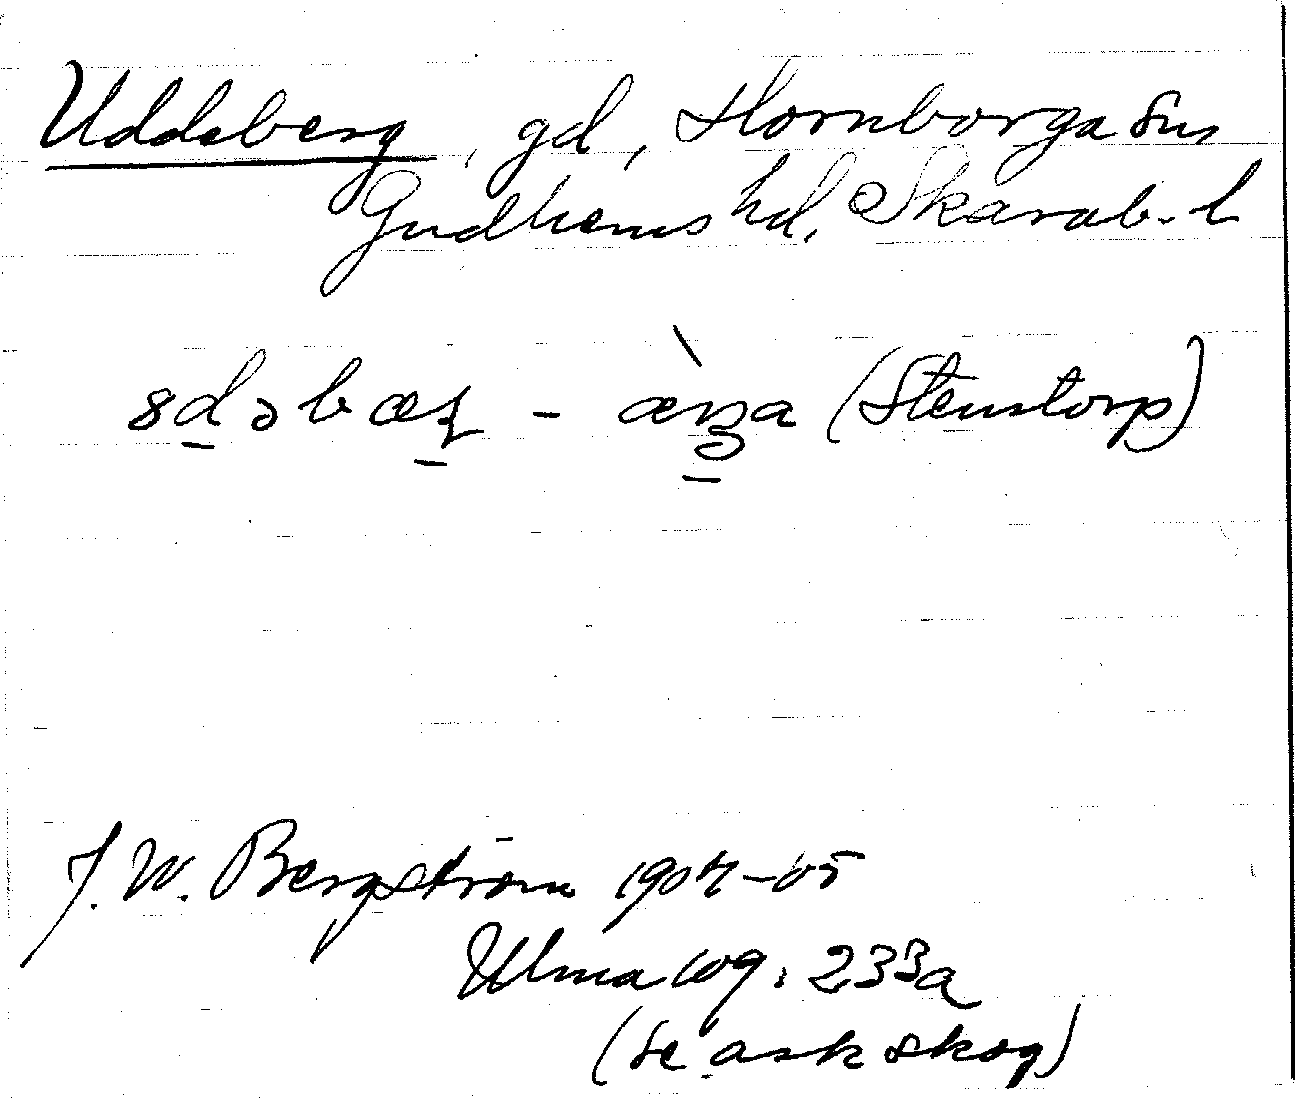 Uddsberg, gd, Hornborga sn,
Gudhems hd, Skarab. l
8dəbæꝛ - æ̀ꞃa (Stenstorp)
J. W. Bergström 1904-05
Ulma 109: 233a
(se askskog)